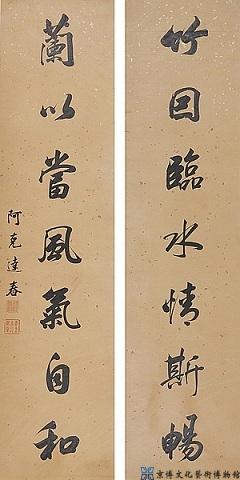 竹因臨水情斯暢
蘭以當風氣自和
阿克達春
京博文化藝術博物館